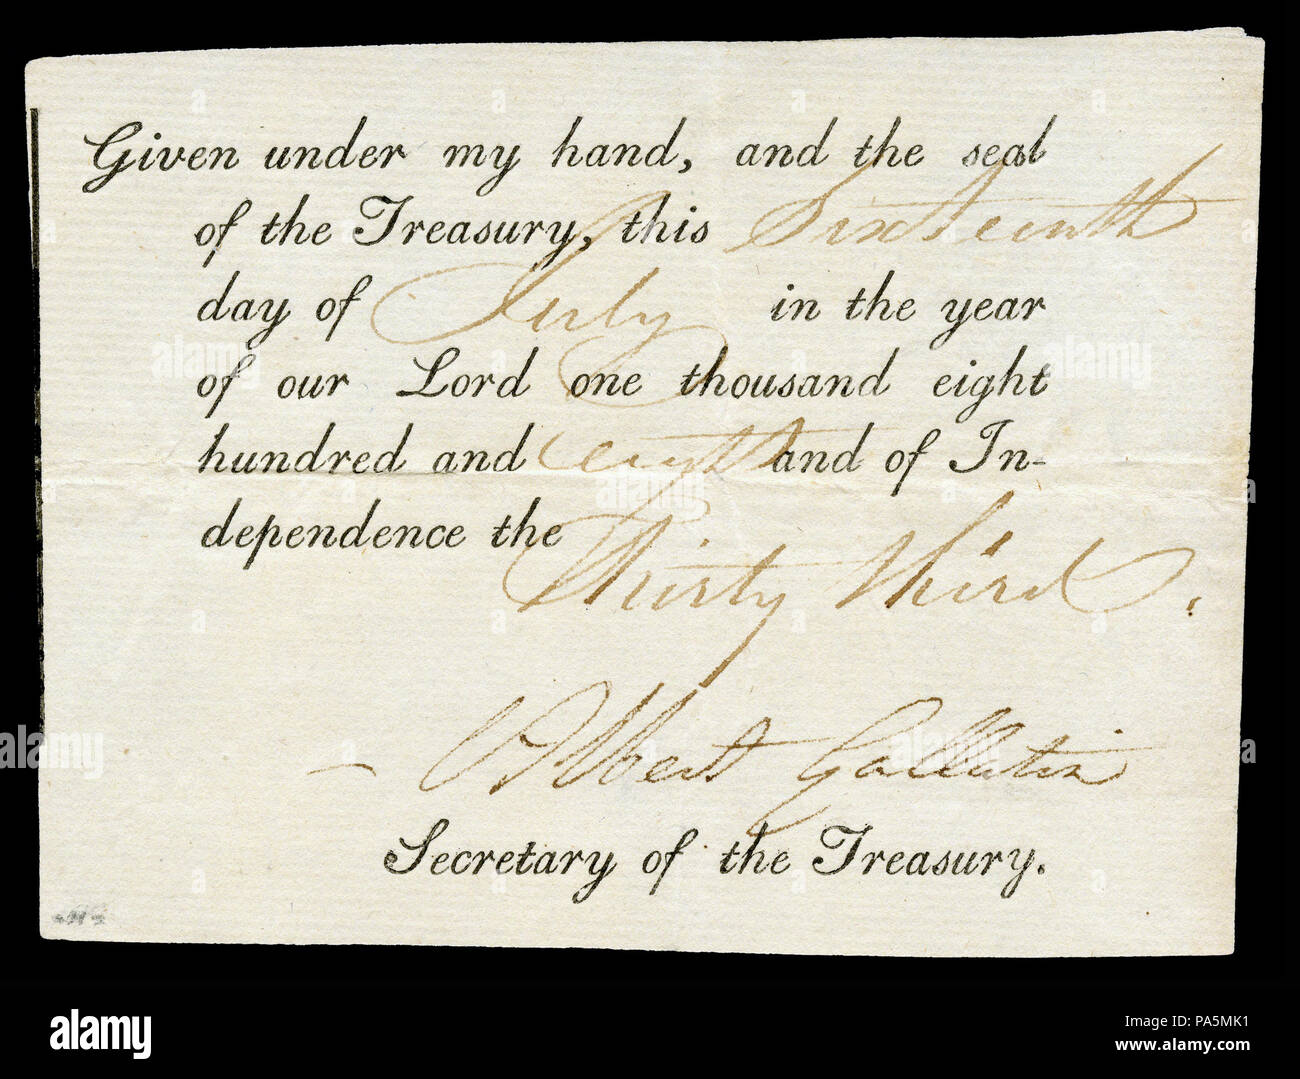 Given under my hand, and the seal
of the Treasury, this Sixteenth
day of July in the year
of our Lord one thousand eight
hundred and eight and of In-
dependence the
Thirty third.
Albert Gallatin
Secretary of the Treasury.
alamy
alamy
Image ID: PA5MK1
www.alamy.com